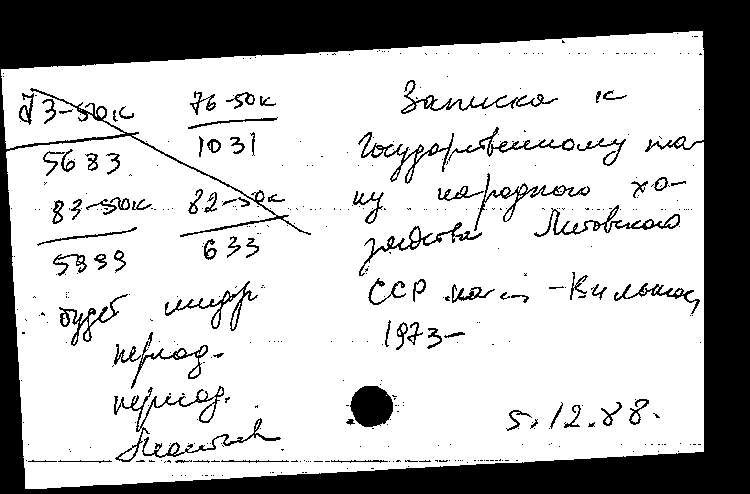 73-50к 76-50к
5683 1031
83-50к 82-50к
5999 633
будет шифр
период.
период.
Записка к
Государственному пла-
ну народного хо-
зяйства Литовской
ССР на -Вильнюс,
1973-
5.12.88.